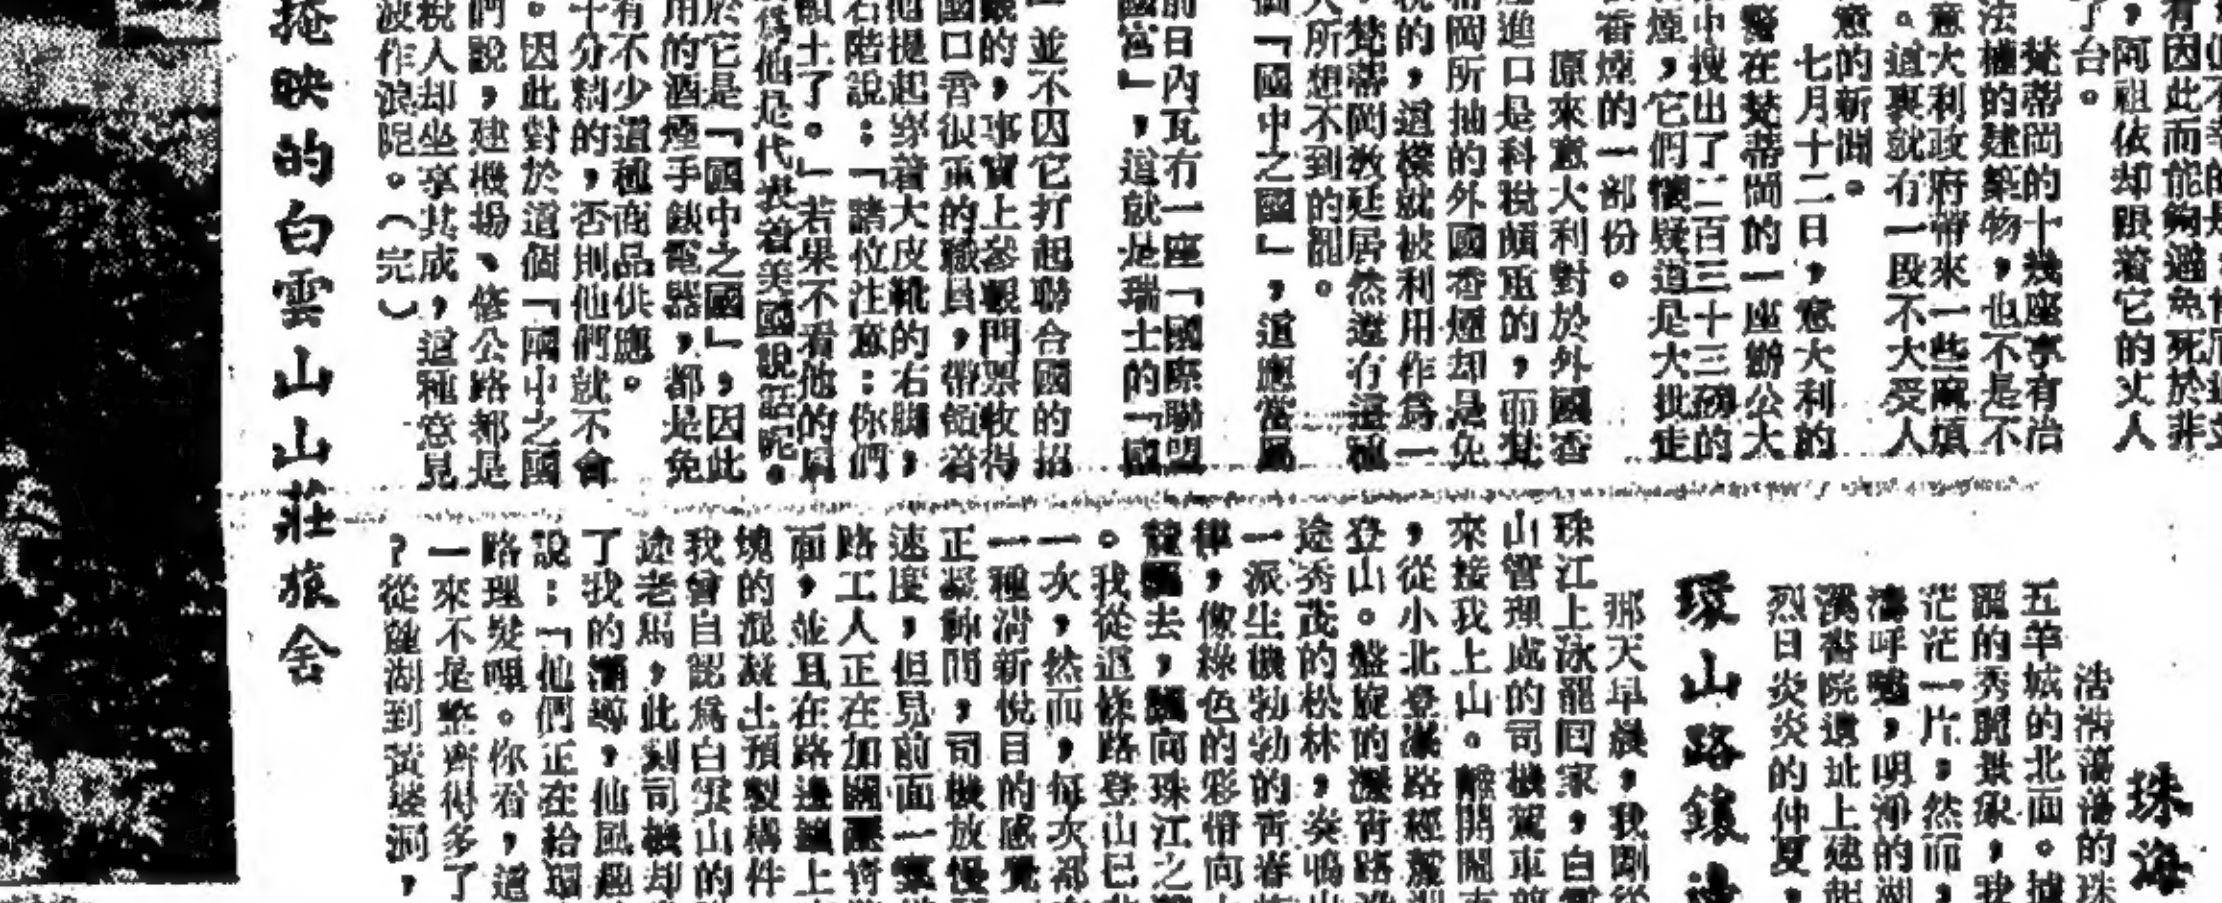 了台。
梵蒂岡的十幾座享有治
法權的建築物，也不是不
意大利政府帶來一些麻煩
。這裏就有一段不大受人
意的新聞。
七月十二日，意大利的
警在梵蒂岡的一座辦公大
中搜出了二百三十三磅的
煙，它們懷疑這是大批走
香煙的一部份。
原來意大利對於外國香
進口是科稅頗重的，而梵
蒂岡所抽的外國香煙却是免
稅的，這樣就被利用作爲一
梵蒂岡教廷居然還有這種
人所想不到的醜。
「國中之國」，這應當屬
前日內瓦有一座「國際聯盟
國宮」，這就是瑞士的「國
並不因它打起聯合國的招
的，事實上參觀門票收得
國口音很重的職員，帶領着
他提起穿着大皮靴的右脚，
石階說：「諸位注意：你們
領土了。」若果不看他的肩
爲他是代表着美國說話呢。
於它是「國中之國」，因此
用的酒煙手錶電器，都是免
有不少這種商品供應。
十分糟的，否則他們就不會
。因此對於這個「國中之國
們說，建機場、修公路都是
稅人却坐享其成，這種意見
波作浪呢。（完）
掩映的白雲山山莊旅舍
珠海
浩浩蕩蕩的珠
五羊城的北面。據
麗的秀麗景象，我
茫茫一片，然而，
濤呼嘯，明淨的湖
溪書院遺址上建起
烈日炎炎的仲夏，
環山路鑲邊
那天早晨，我剛從
珠江上泳罷回家，白雲
山管理處的司機駕車前
來接我上山。離開鬧市
，從小北登瀛路經麓湖
登山。盤旋的瀝青路沿
途秀茂的松林，
一派生機勃勃的青春
律，像綠色的彩帶向
龍飄去，飄向珠江之
。我從這條路登山已
一次，然而，每次都
一種清新悅目的感覺
正凝神間，司機放慢
速度，但見前面一羣
路工人正在加闊瀝青
面，並且在路邊鑲上
塊的混凝土預製構件
我曾自認爲白雲山的
途老馬，此刻司機却
了我的嚮導，他風趣
說：「他們正在給環
路理髮哩。你看，這
一來不是整齊得多了
？從麓湖到黃婆洞，